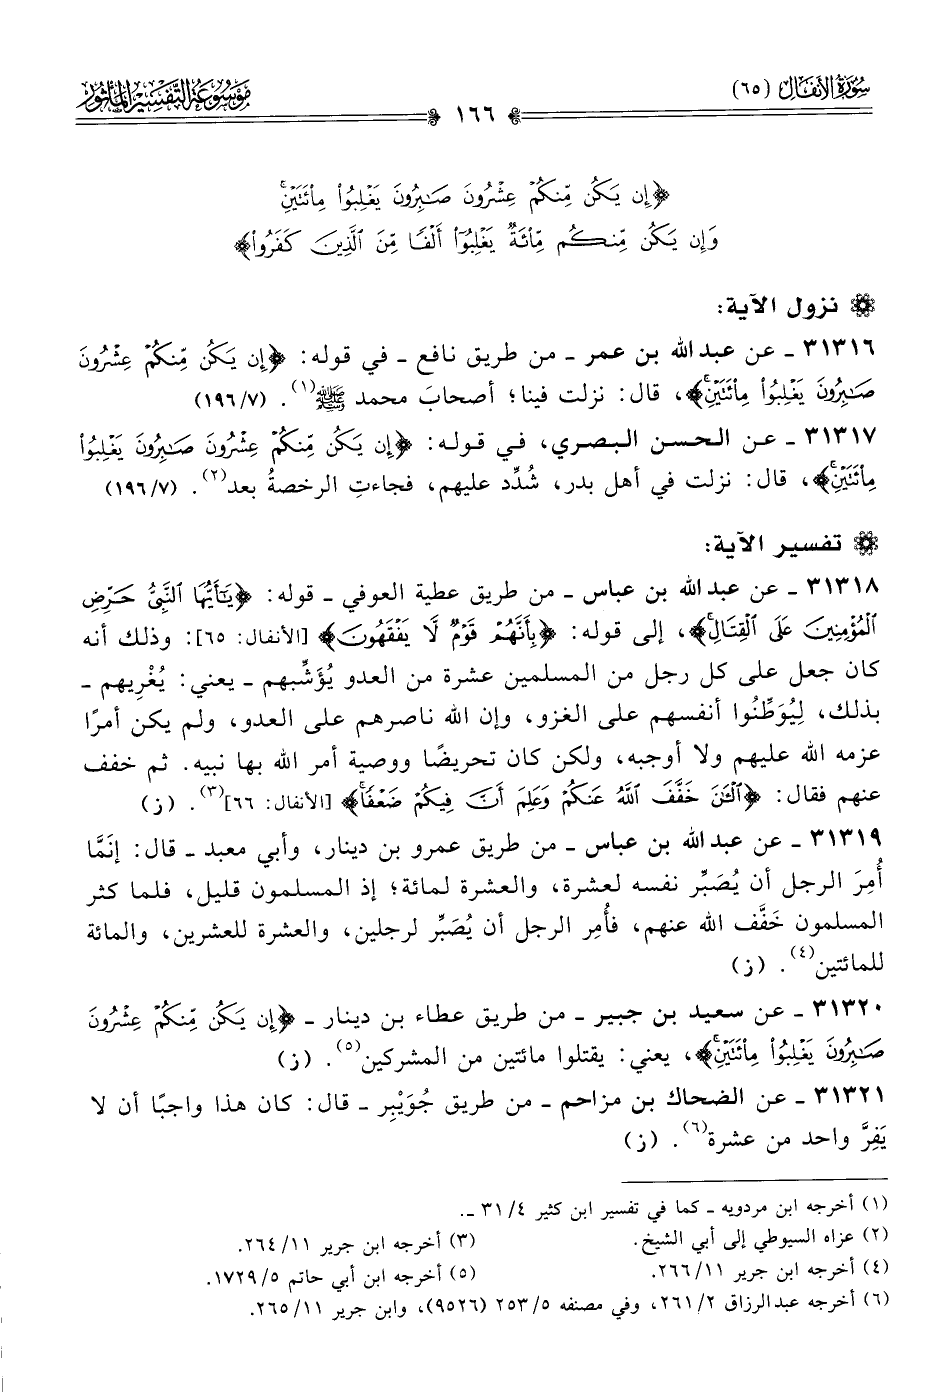 سورة الأنفال (٦٥)
١٦٦
موسوعة التفسير المأثور
﴿إِن يَكُن مِّنكُمْ عِشْرُونَ صَٰبِرُونَ يَغْلِبُوا۟ مِا۟ئَتَيْنِ ۚ
وَإِن يَكُن مِّنكُم مِّا۟ئَةٌ يَغْلِبُوٓا۟ أَلْفًا مِّنَ ٱلَّذِينَ كَفَرُوا۟﴾
نزول الآية:
٣١٣١٦ ـ عن عبد الله بن عمر ـ من طريق نافع ـ في قوله: ﴿إِن يَكُن مِّنكُمْ عِشْرُونَ
صَٰبِرُونَ يَغْلِبُوا۟ مِا۟ئَتَيْنِ ۚ﴾، قال: نزلت فينا؛ أصحابَ محمد ﷺ(١). (١٩٦/٧)
٣١٣١٧ ـ عن الحسن البصري، في قوله: ﴿إِن يَكُن مِّنكُمْ عِشْرُونَ صَٰبِرُونَ يَغْلِبُوا۟
مِا۟ئَتَيْنِ ۚ﴾، قال: نزلت في أهل بدر، شُدِّد عليهم، فجاءتِ الرخصةُ بعد(٢). (١٩٦/٧)
تفسير الآية:
٣١٣١٨ ـ عن عبد الله بن عباس ـ من طريق عطية العوفي ـ قوله: ﴿يَٰٓأَيُّهَا ٱلنَّبِىُّ حَرِّضِ
ٱلْمُؤْمِنِينَ عَلَى ٱلْقِتَالِ ۚ﴾، إلى قوله: ﴿بِأَنَّهُمْ قَوْمٌ لَّا يَفْقَهُونَ﴾ [الأنفال: ٦٥]: وذلك أنه
كان جعل على كل رجل من المسلمين عشرة من العدو يُؤَشِّبهم ـ يعني: يُغْرِيهم ـ
بذلك، لِيُوَطِّنُوا أنفسهم على الغزو، وإن الله ناصرهم على العدو، ولم يكن أمرًا
عزمه الله عليهم ولا أوجبه، ولكن كان تحريضًا ووصية أمر الله بها نبيه. ثم خفف
عنهم فقال: ﴿ٱلْـَٰٔنَ خَفَّفَ ٱللَّهُ عَنكُمْ وَعَلِمَ أَنَّ فِيكُمْ ضَعْفًا ۚ﴾ [الأنفال: ٦٦](٣). (ز)
٣١٣١٩ ـ عن عبد الله بن عباس ـ من طريق عمرو بن دينار، وأبي معبد ـ قال: إنَّمَا
أُمِرَ الرجل أن يُصَبِّر نفسه لعشرة، والعشرة لمائة؛ إذ المسلمون قليل، فلما كثر
المسلمون خَفَّف الله عنهم، فأُمِر الرجل أن يُصَبِّر لرجلين، والعشرة للعشرين، والمائة
للمائتين(٤). (ز)
٣١٣٢٠ ـ عن سعيد بن جبير ـ من طريق عطاء بن دينار ـ ﴿إِن يَكُن مِّنكُمْ عِشْرُونَ
صَٰبِرُونَ يَغْلِبُوا۟ مِا۟ئَتَيْنِ ۚ﴾، يعني: يقتلوا مائتين من المشركين(٥). (ز)
٣١٣٢١ ـ عن الضحاك بن مزاحم ـ من طريق جُوَيْبِر ـ قال: كان هذا واجبًا أن لا
يَفِرَّ واحد من عشرة(٦). (ز)
(١) أخرجه ابن مردويه ـ كما في تفسير ابن كثير ٤/ ٣١ ـ.
(٢) عزاه السيوطي إلى أبي الشيخ. (٣) أخرجه ابن جرير ١١/ ٢٦٤.
(٤) أخرجه ابن جرير ١١/ ٢٦٦. (٥) أخرجه ابن أبي حاتم ٥/ ١٧٢٩.
(٦) أخرجه عبد الرزاق ٢/ ٢٦١، وفي مصنفه ٥/ ٢٥٣ (٩٥٢٦)، وابن جرير ١١/ ٢٦٥.